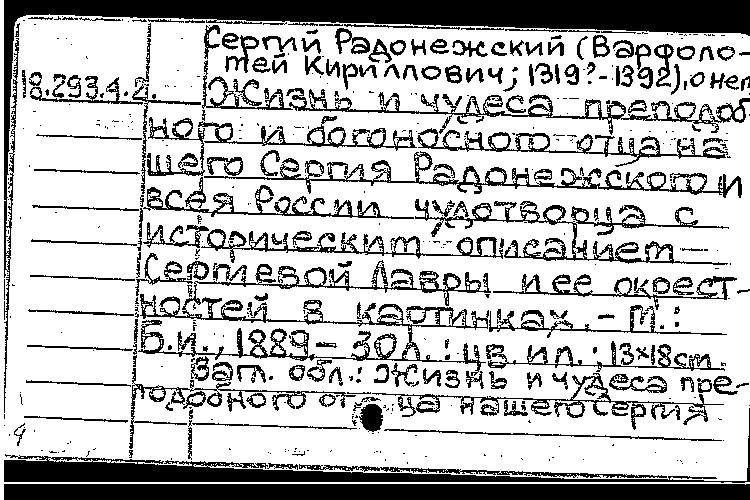 Сергий Радонежский (Варфоло-
мей Кириллович; 1319?-1392), о нем
18.293.4.2.
Жизнь и чудеса преподоб-
ного и богоносного отца на
шего Сергия Радонежского и
всея России чудотворца с
историческим описанием
Сергиевой Лавры и ее окрест-
ностей в картинках. - М.:
Б.и., 1889. - 30л.: цв. ил.; 13x18cm.
Загл. обл.: Жизнь и чудеса пре-
подобного отца нашего Сергия